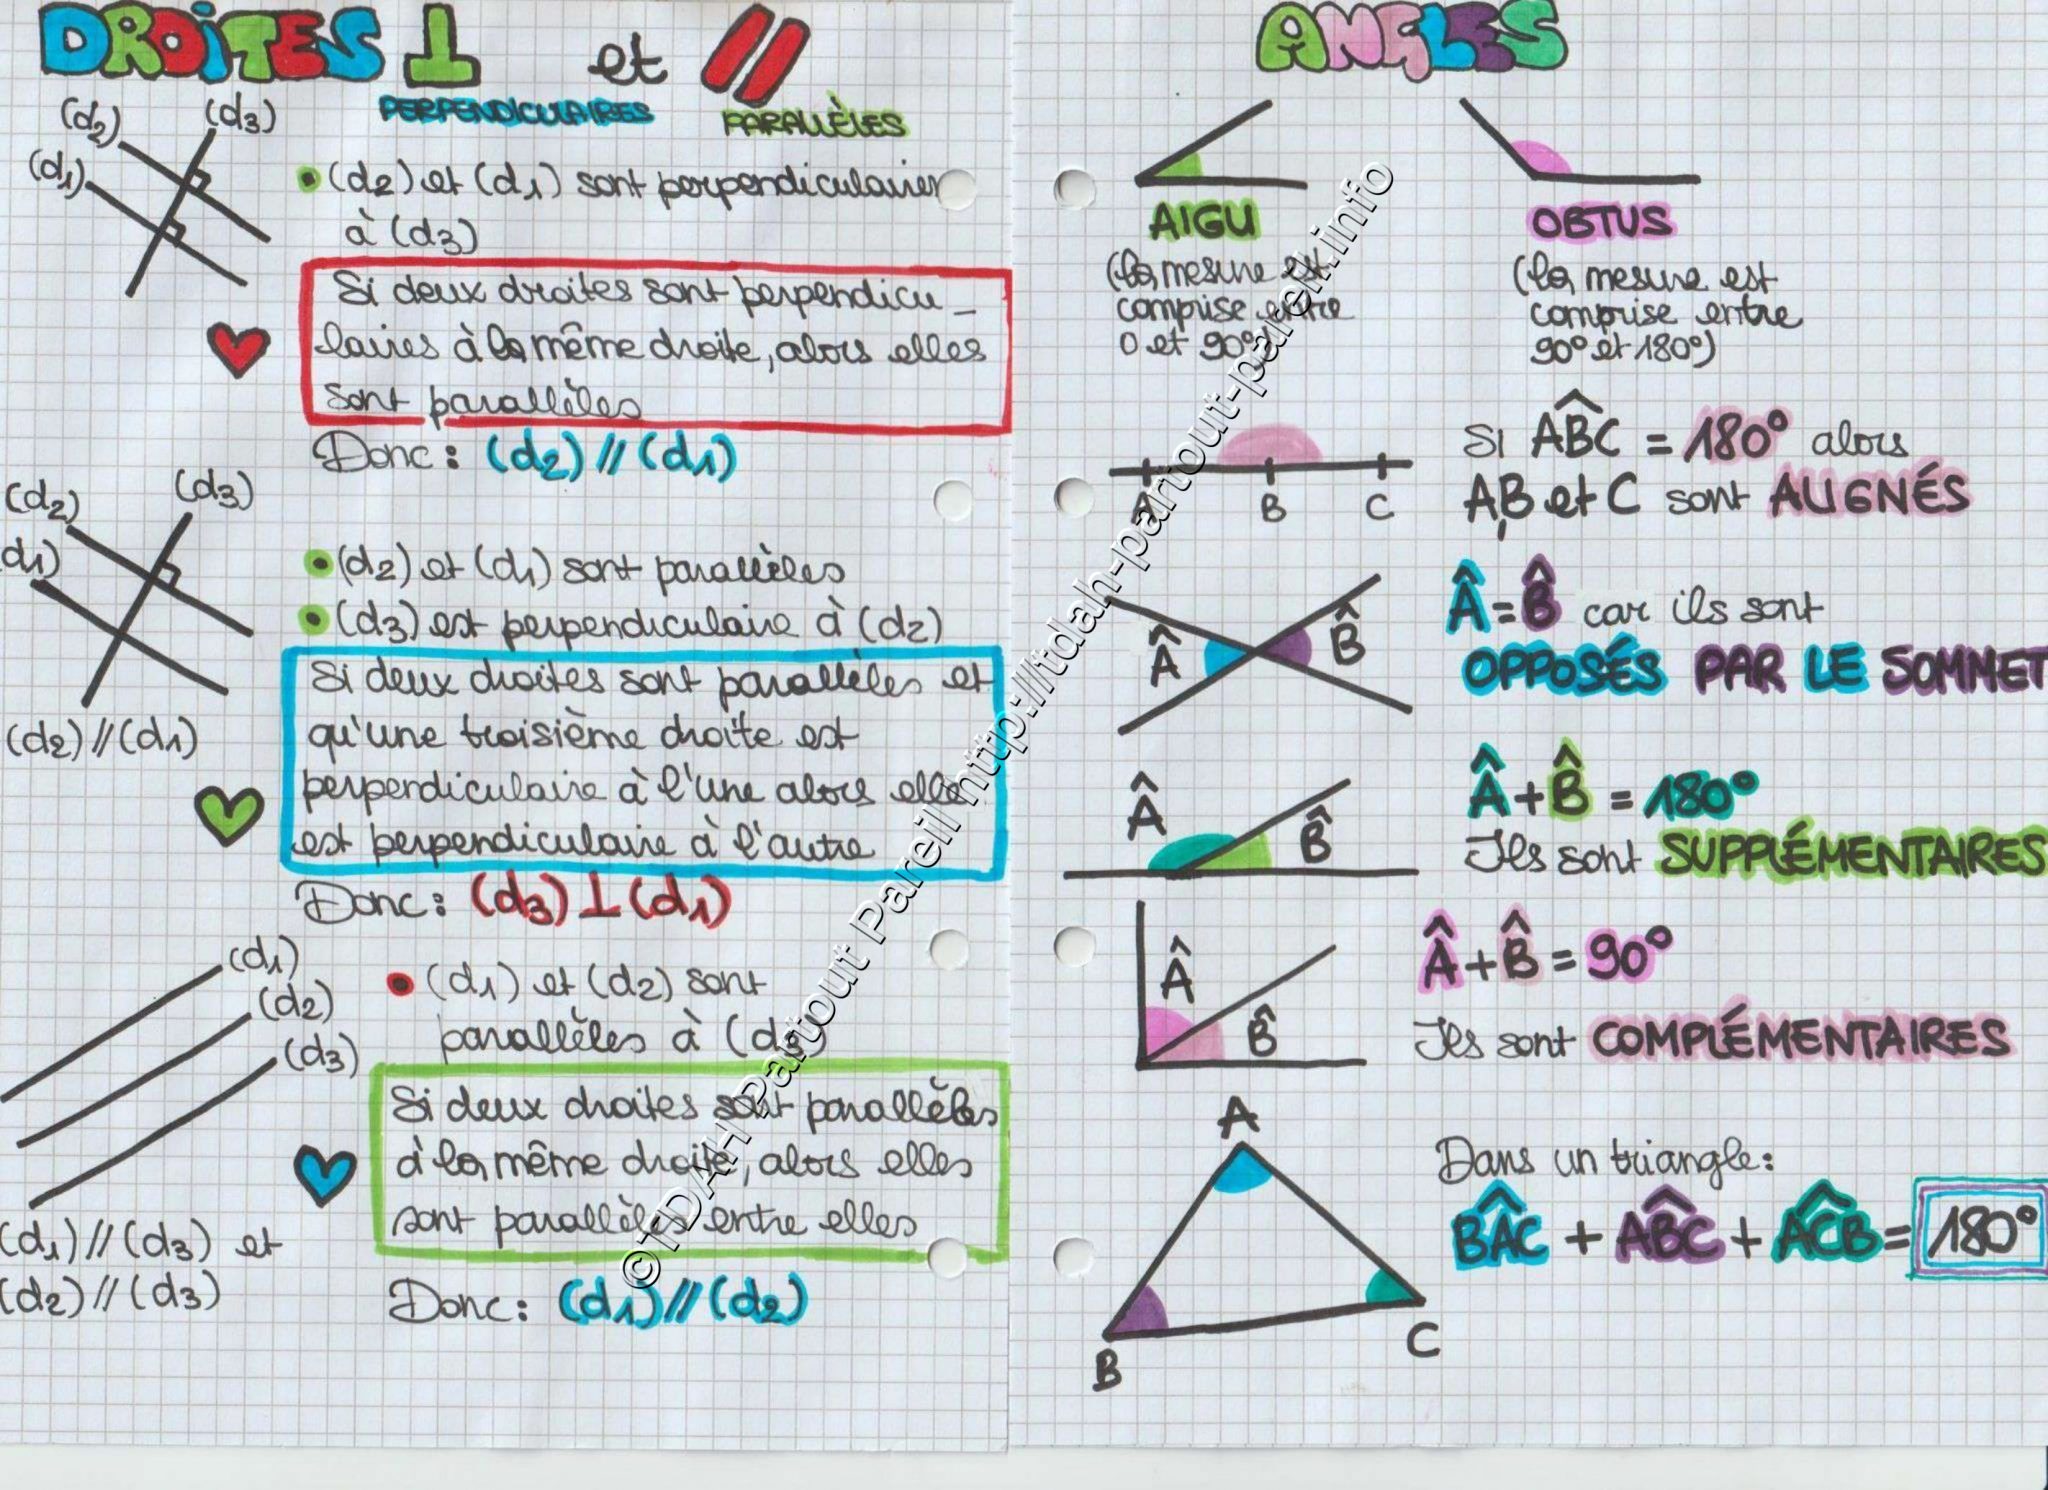 DROITES ⊥ et //
PERPENDICULAIRES PARALLÈLES
(d2) (d3)
(d1)
• (d2) et (d1) sont perpendiculaires
à (d3)
Si deux droites sont perpendicu-
laires à la même droite, alors elles
sont parallèles
Donc : (d2) // (d1)
(d2) (d3)
d1)
• (d2) et (d1) sont parallèles
• (d3) est perpendiculaire à (d2)
(d2) // (d1)
Si deux droites sont parallèles et
qu'une troisième droite est
perpendiculaire à l'une alors elle
est perpendiculaire à l'autre
Donc : (d3) ⊥ (d1)
(d1)
(d2)
(d3)
• (d1) et (d2) sont
parallèles à (d3)
Si deux droites sont parallèles
à la même droite, alors elles
sont parallèles entre elles
(d1) // (d3) et
(d2) // (d3)
Donc : (d1) // (d2)
ANGLES
AIGU
(la mesure est
comprise entre
0 et 90°)
OBTUS
(la mesure est
comprise entre
90° et 180°)
A B C
Si ABC = 180° alors
A,B et C sont ALIGNÉS
Â B̂
Â = B̂ car ils sont
OPPOSÉS PAR LE SOMMET
Â B̂
Â + B̂ = 180°
Ils sont SUPPLÉMENTAIRES
Â
B̂
Â + B̂ = 90°
Ils sont COMPLÉMENTAIRES
A
B
C
Dans un triangle :
BAC + ABC + ACB = 180°
©TDAH Partout Pareil http://tdah-partout-pareil.info